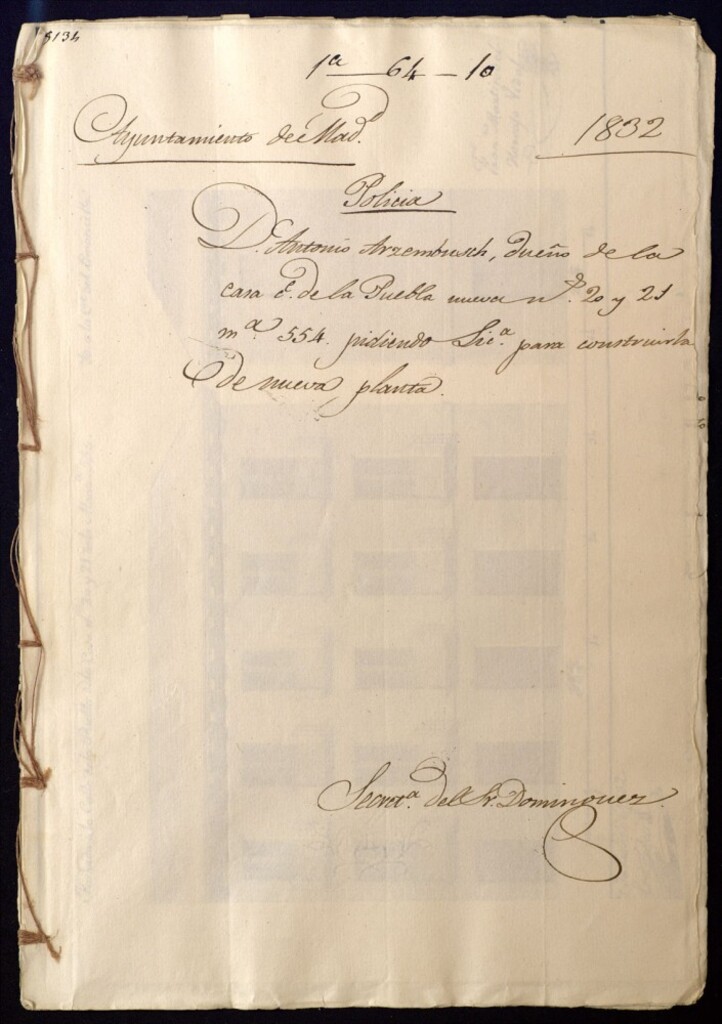 8134
1ª — 64 — 10
Ayuntamiento de Madᵈ.
1832
Policia
D. Antonio Arzembusch, dueño de la
casa C. de la Puebla nueva nº. 20 y 21
mª. 554. pidiendo Licª. para construirla
de nueva planta.
Secretª. del Sr. Dominguez.